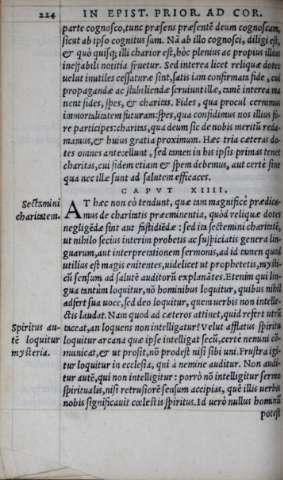 224 IN EPIST. PRIOR. AD COR.
parte cognosco, tunc præsens præsentē deum cognoscam,
sicut ab ipso cognitus sum. Nā ab illo cognosci, diligi est,
& quò quisq; illi charior est, hòc plenius ac propius illius
ineffabili notitia fruetur. Sed interea licet reliquæ dotes
uelut inutiles cessaturæ sint, satis iam confirmata fide, cui
propagandæ ac stabiliendæ seruiunt illæ, tamē interea ma
nent fides, spes, & charitas. Fides, qua procul cernimus
immortalitatem futuram: spes, qua confidimus nos illius fo
re participes: charitas, qua deum sic de nobis meritū reda-
mamus, & huius gratia proximum. Hæc tria cæteras do-
tes omnes antecellunt, sed tamen in his ipsis primas tenet
charitas, cui fidem etiam & spem debemus, aut certè sine
qua nec illæ sunt ad salutem efficaces.
CAPVT XIIII.
Sectamini
charitatem.
AT hæc non eò tendunt, quæ tam magnificè prædica-
mus de charitatis præeminentia, quòd reliquæ dotes
negligēdæ sint aut fastidiēdæ: sed ita sectemini charitatē,
ut nihilo secius interim probetis ac suspiciatis genera lin-
guarum, aut interpretationem sermonis, ad id tamen quod
utilius est magis enitentes, uidelicet ut prophetetis, mysti-
cū sensum ad salutē auditorū explanātes. Etenim qui lin-
gua tantùm loquitur, nō hominibus loquitur, quibus nihil
adfert sua uoce, sed deo loquitur, quem uerbis non intelle-
ctis laudat. Nam quod ad cæteros attinet, quid refert utrū
Spiritus au-
tē loquitur
mysteria.
taceat, an loquens non intelligatur? Velut afflatus spiritu
loquitur arcana quæ ipse intelligat secū, certè nemini cō-
municat, & ut prosit, nō prodest nisi sibi uni. Frustra igi-
tur loquitur in ecclesia, qui à nemine auditur. Non audi-
tur autē, qui non intelligitur: porrò nō intelligitur sermo
spiritualis, nisi retrusiorē sensum accipias, quē illis uerbis
nobis significauit cœlestis spiritus. Id uerò nullus homo
potest